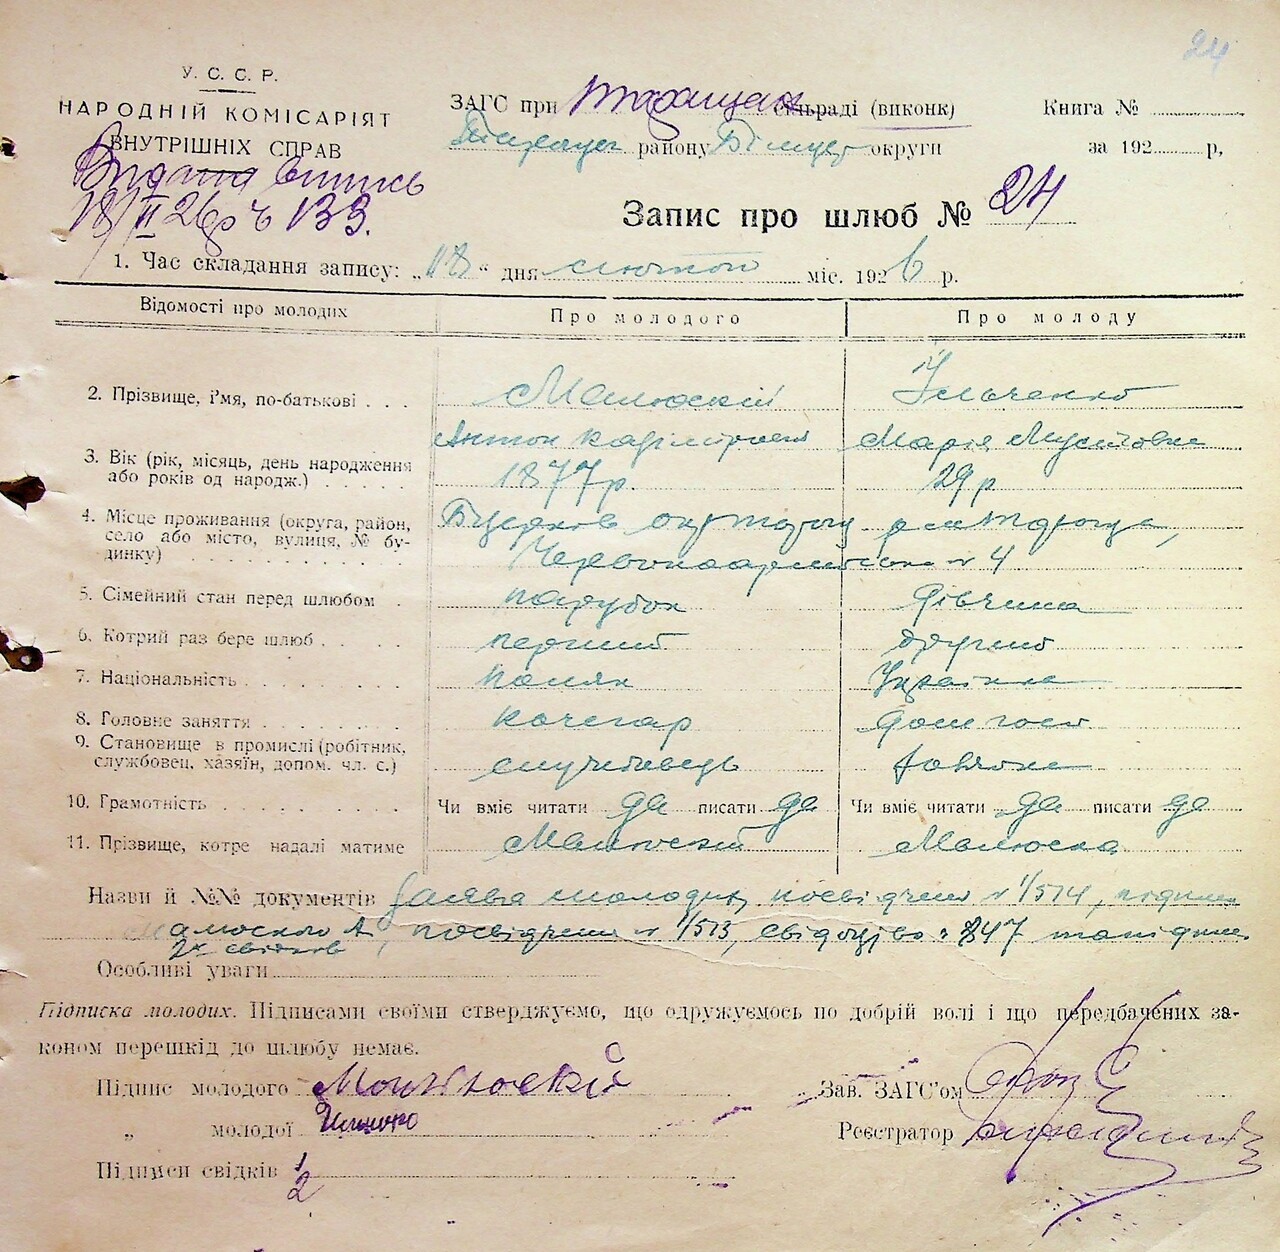 24
У. С. С. Р.
НАРОДНІЙ КОМІСАРІЯТ
ВНУТРІШНІХ СПРАВ
Видана випись
18/II 26 р ч 133.
ЗАГС при Таращан сільраді (виконк)
району Білоцер округи
Книга №
за 192 р,
Запис про шлюб № 24
1. Час складання запису: „18“ дня лютого міс. 1926 р.
Відомості про молодих Про молодого Про молоду
2. Прізвище, і'мя, по-батькові . . . Малюский Ільченко
Антон Казімірович Марія Мусіївна
3. Вік (рік, місяць, день народження або років од народж.) . . . . . 1877р. 29 р
4. Місце проживання (округа, район, село або місто, вулиця, № будинку) . . . . . . . . . .
Червоноармійська № 4
5. Сімейний стан перед шлюбом . парубок дівчина
6. Котрий раз бере шлюб . . . . перший другий
7. Національність . . . . . . . . поляк Українка
8. Головне заняття . . . . . . . кочегар дом госп
9. Становище в промислі (робітник, службовец, хазяїн, допом. чл. с.) служебовець
10. Грамотність . . . . . . . . . Чи вміє читати да писати да Чи вміє читати да писати да
11. Прізвище, котре надалі матиме Малюский Малюска
Назви й №№ документів Заява молодих, посвідчення № 1/514,
посвідчення № 1/513, № 847
2х свідків
Особливі уваги
Підписка молодих. Підписами своїми стверджуємо, що одружуємось по добрій волі і що передбачених законом перешкід до шлюбу немає.
Підпис молодого Малюский
„ молодої
Підписи свідків 1
2
Зав. ЗАГС'ом
Реєстратор